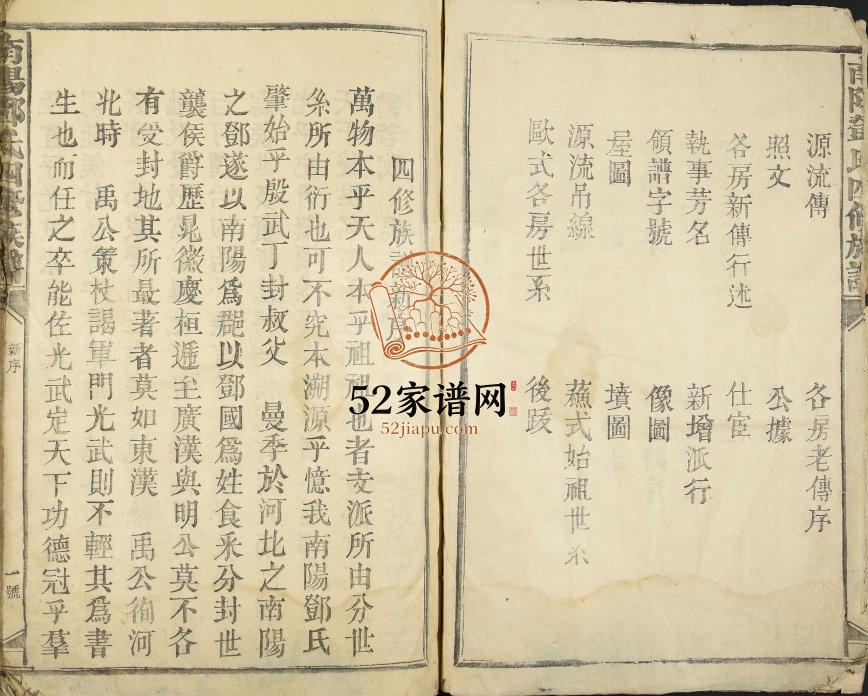 南陽鄧氏四修族譜
源流傳　各房老傳序
照文　公據
各房新傳行述　仕宦
執事芳名　新增派行
領譜字號　像圖
屋圖　墳圖
源流吊線　蘓式始祖世系
歐式各房世系　後跋
四修族譜新序
萬物本乎天人本乎祖祖也者支派所由分世
系所由衍也可不究本溯源乎憶我南陽鄧氏
肇始乎殷武丁封叔父　曼季於河北之南陽
之鄧遂以南陽爲郡以鄧國爲姓食釆分封世
襲侯爵歷晁徽慶桓遞至廣漢與明公莫不各
有受封地其所最著者莫如東漢　禹公徇河
北時　禹公策杖謁軍門光武則不輕其爲書
生也而任之卒能佐光武定天下功德冠乎羣
南陽鄧氏四修族譜
新序
一號
52家谱网
52jiapu.com